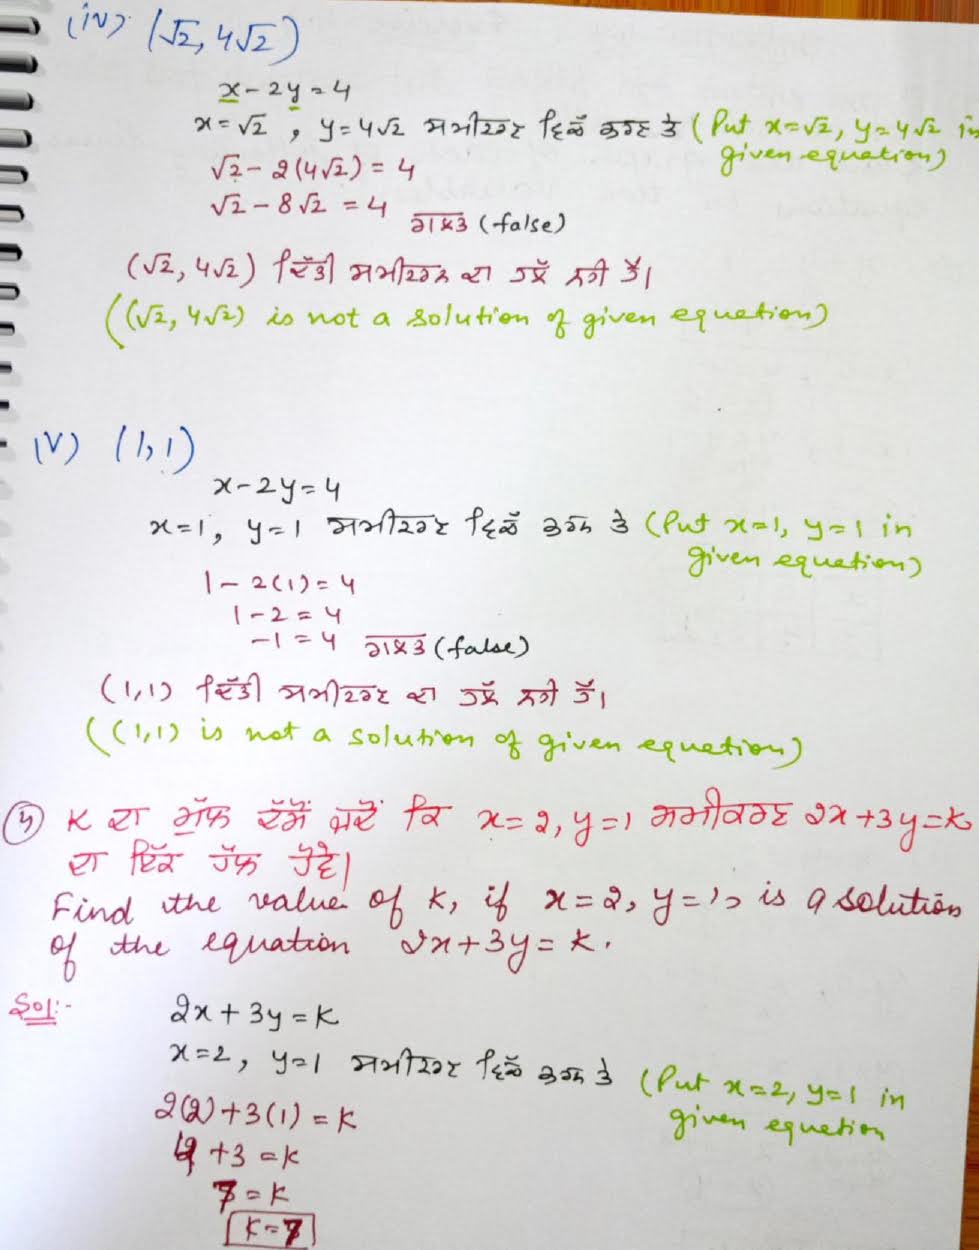 (iv) (√2, 4√2)
x - 2y = 4
x = √2 , y = 4√2 ਸਮੀਕਰਣ ਵਿੱਚ ਭਰਣ ਤੇ (Put x=√2, y=4√2 in
given equation)
√2 - 2(4√2) = 4
√2 - 8√2 = 4 ਗਲਤ (false)
(√2, 4√2) ਦਿੱਤੀ ਸਮੀਕਰਨ ਦਾ ਹੱਲ ਨਹੀਂ ਹੈ।
((√2, 4√2) is not a solution of given equation)
(V) (1,1)
x - 2y = 4
x = 1, y = 1 ਸਮੀਕਰਣ ਵਿੱਚ ਭਰਨ ਤੇ (Put x=1, y=1 in
given equation)
1 - 2(1) = 4
1 - 2 = 4
-1 = 4 ਗਲਤ (false)
(1,1) ਦਿੱਤੀ ਸਮੀਕਰਣ ਦਾ ਹੱਲ ਨਹੀਂ ਹੈ।
((1,1) is not a solution of given equation)
K ਦਾ ਮੁੱਲ ਦੱਸੋ ਜਦੋਂ ਕਿ x = 2, y = 1 ਸਮੀਕਰਣ 2x + 3y = k
ਦਾ ਇੱਕ ਹੱਲ ਹੋਵੇ।
Find the value of k, if x = 2, y = 1, is a solution
of the equation 2x + 3y = k.
Sol:-
2x + 3y = k
x = 2, y = 1 ਸਮੀਕਰਣ ਵਿੱਚ ਭਰਨ ਤੇ (Put x=2, y=1 in
given equation
2(2) + 3(1) = k
4 + 3 = k
7 = k
k = 7